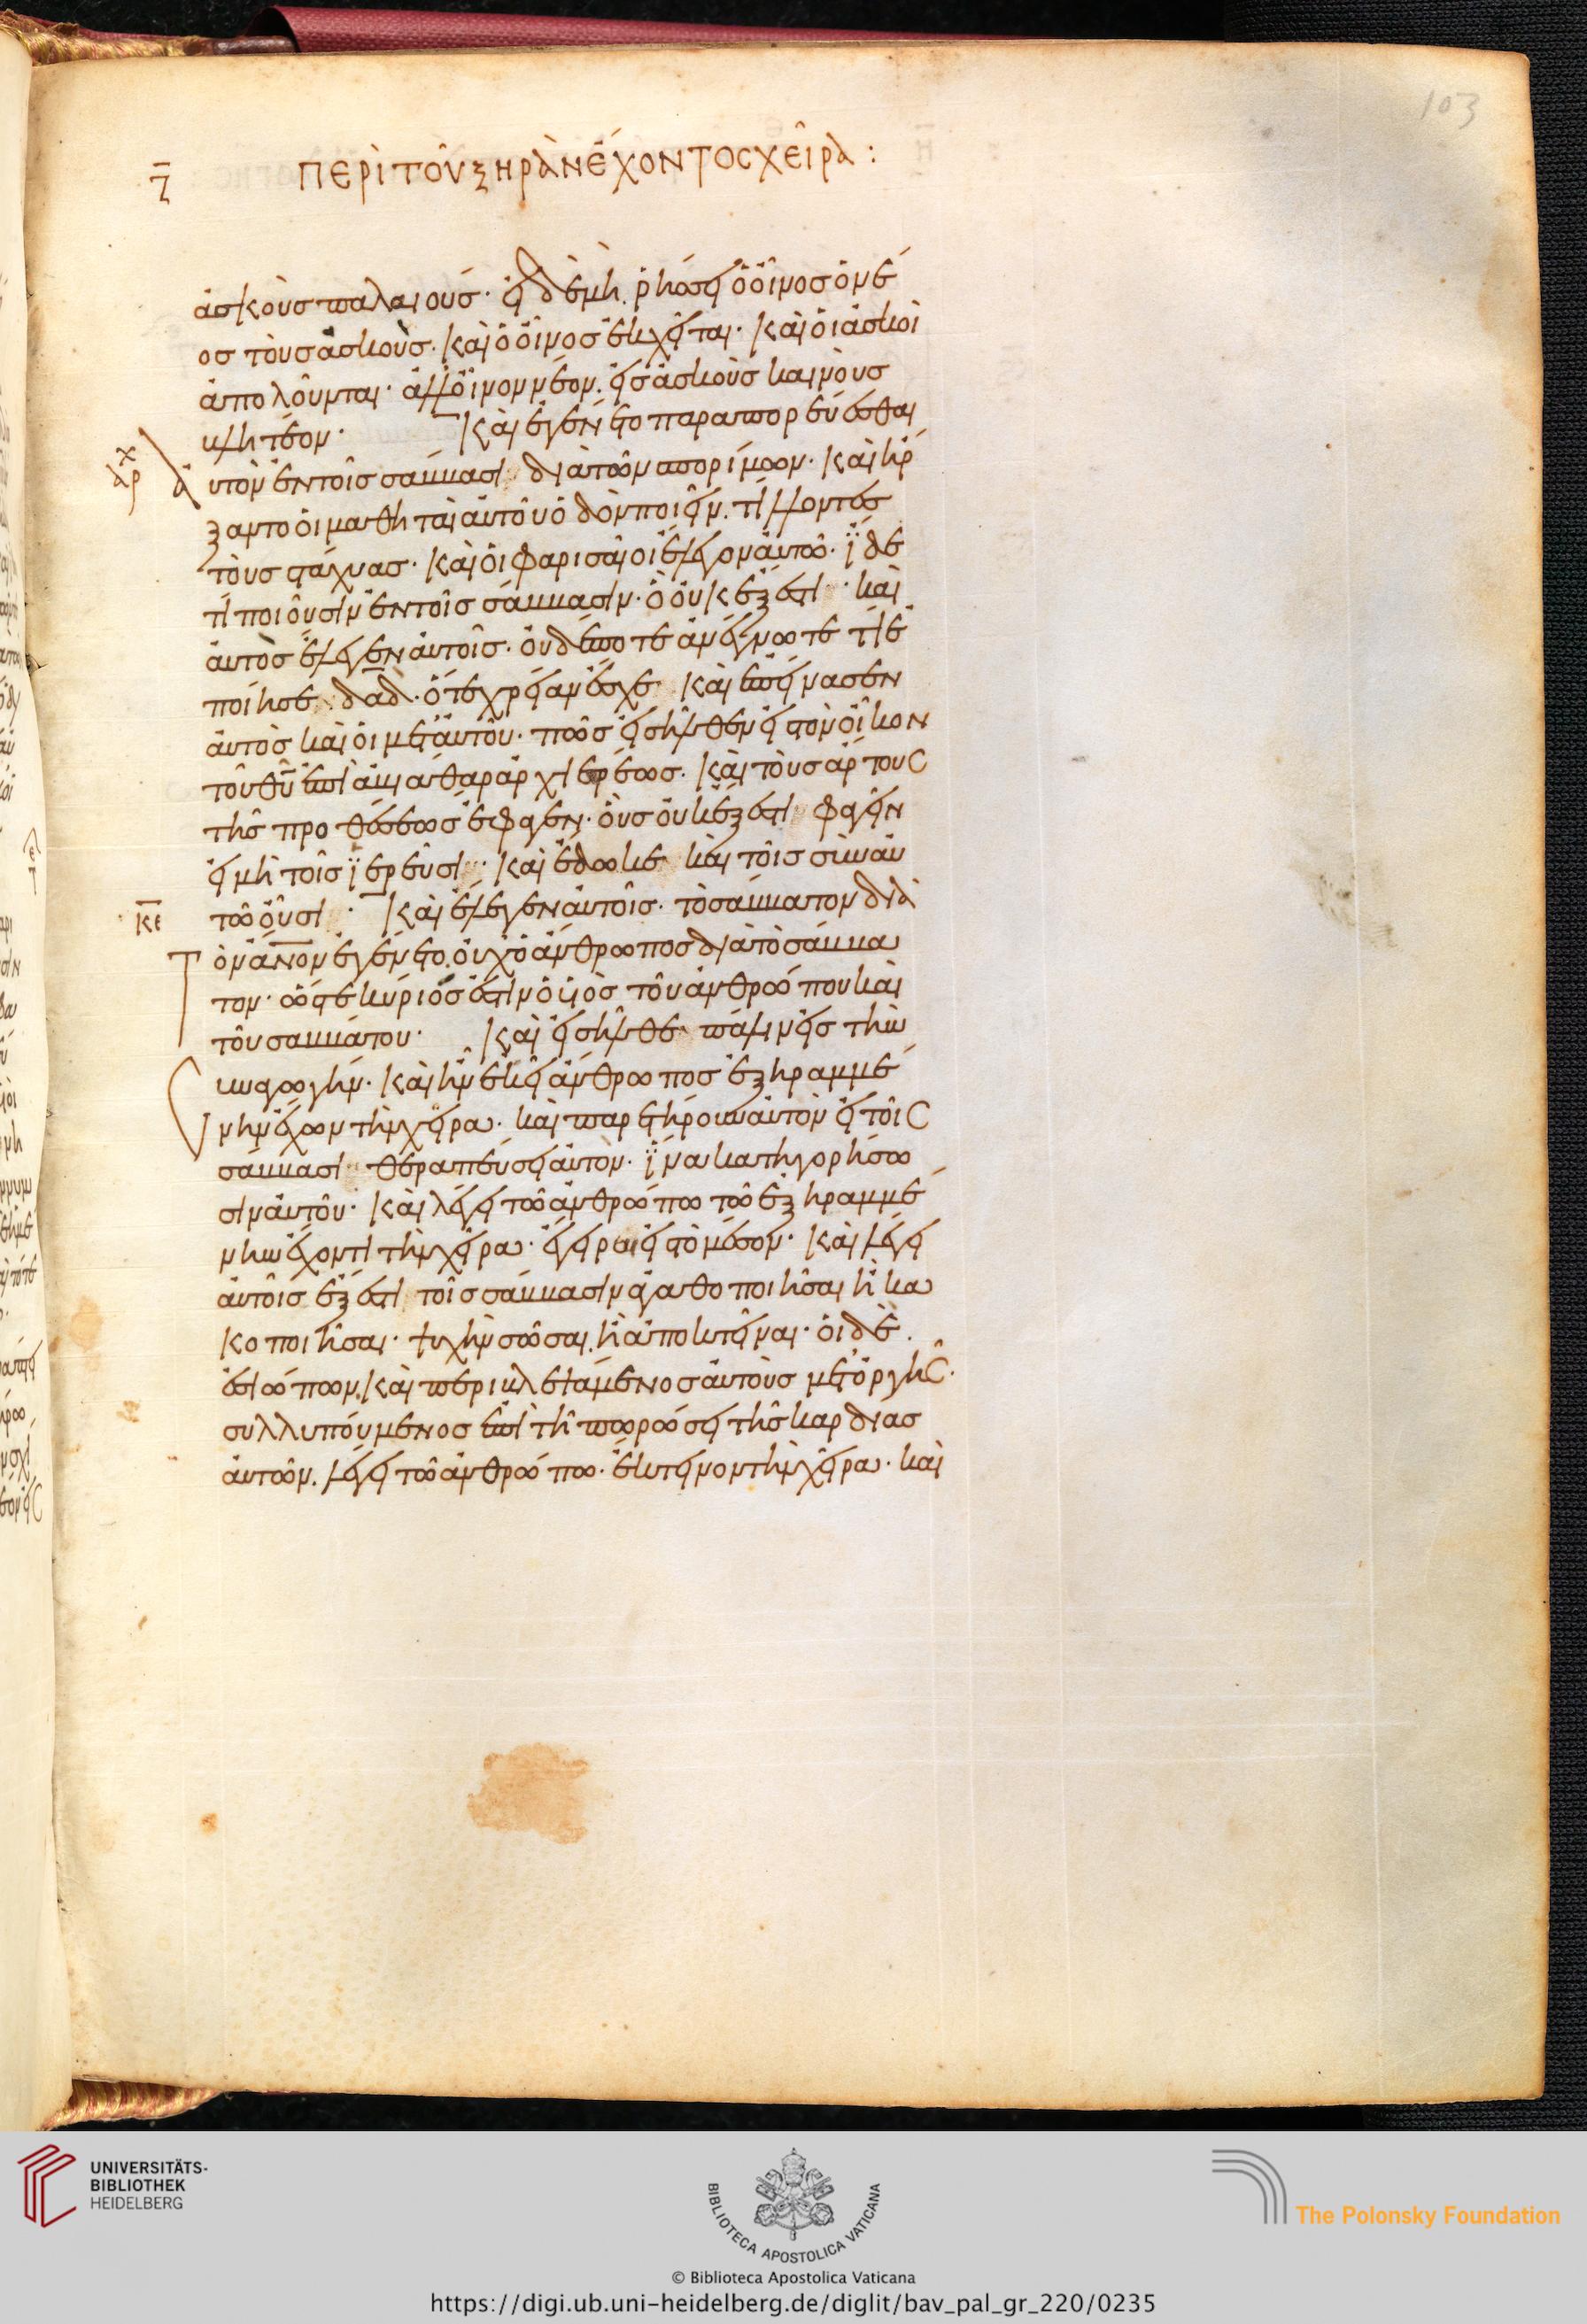 103
ζ ΠΕΡῚ ΤΟῦ ΞΗΡᾺΝ ἜΧΟΝΤΟΣ ΧΕῖΡΑ :
ἀσκοὺς παλαιούς· εἰ δὲ μὴ. ῥήσσει ὁ οἶνος ὁ νέ
ος τοὺς ἀσκοὺς. καὶ ὁ οἶνος ἐκχεῖται· καὶ οἱ ἀσκοὶ
ἀπολοῦνται· ἀλλ' οἶνον νέον. εἰς ἀσκοὺς καινοὺς
βλητέον· Καὶ ἐγένετο παραπορεύεσθαι
αὐτὸν ἐν τοῖς σάββασι διὰ τῶν σπορίμων. καὶ ἤρ
ξαντο οἱ μαθηταὶ αὐτοῦ ὁδὸν ποιεῖν. τίλλοντες
τοὺς στάχυας· καὶ οἱ φαρισαῖοι ἔλεγον αὐτῶ. ἴδε
τί ποιοῦσιν ἐν τοῖς σάββασιν· ὃ οὐκ ἔξεστι· καὶ
αὐτὸς ἔλεγεν αὐτοῖς. οὐδέποτε ἀνέγνωτε τί ἐ
ποίησε δαδ· ὅτε χρείαν ἔσχε καὶ ἐπείνασεν
αὐτὸς καὶ οἱ μετ' αὐτοῦ· πῶς εἰσῆλθεν εἰς τὸν οἶκον
τοῦ θυ ἐπὶ ἀβιάθαρ ἀρχιερέως. καὶ τοὺς ἄρτους
τῆς προθέσεως ἔφαγεν· οὓς οὐκ ἔξεστι φαγεῖν
εἰ μὴ τοῖς ἱερεῦσι· καὶ ἔδωκε καὶ τοῖς σὺν αὐ
τῶ οὖσι· Καὶ ἔλεγεν αὐτοῖς. τὸ σάββατον διὰ
κε
τὸν ἄνον ἐγένετο. οὐχ ὁ ἄνθρωπος διὰ τὸ σάββα
τον· ὥστε κύριός ἐστιν ὁ υἱὸς τοῦ ἀνθρώπου καὶ
τοῦ σαββάτου· Καὶ εἰσῆλθε πάλιν εἰς τὴν
συναγωγήν. καὶ ἦν ἐκεῖ ἄνθρωπος ἐξηραμμέ
νην ἔχων τὴν χεῖρα. καὶ παρετήρουν αὐτὸν εἰ τοῖς
σάββασι θεραπεύσει αὐτὸν. ἵνα κατηγορήσω
σιν αὐτοῦ· καὶ λέγει τῶ ἀνθρώπω τῶ ἐξηραμμέ
νην ἔχοντι τὴν χεῖρα· ἔγειραι εἰς τὸ μέσον· καὶ λέγει
αὐτοῖς ἔξεστι τοῖς σάββασιν ἀγαθοποιῆσαι ἢ κα
κοποιῆσαι· ψυχὴν σῶσαι. ἢ ἀποκτεῖναι· οἱ δὲ.
ἐσιώπων. καὶ περιβλεψάμενος αὐτοὺς μετ' ὀργῆς.
συλλυπούμενος ἐπὶ τῆ πωρώσει τῆς καρδίας
αὐτῶν. λέγει τῶ ἀνθρώπω. ἔκτεινον τὴν χεῖρα. καὶ
UNIVERSITÄTS-
BIBLIOTHEK
HEIDELBERG
BIBLIOTECA APOSTOLICA VATICANA
The Polonsky Foundation
© Biblioteca Apostolica Vaticana
https://digi.ub.uni-heidelberg.de/diglit/bav_pal_gr_220/0235